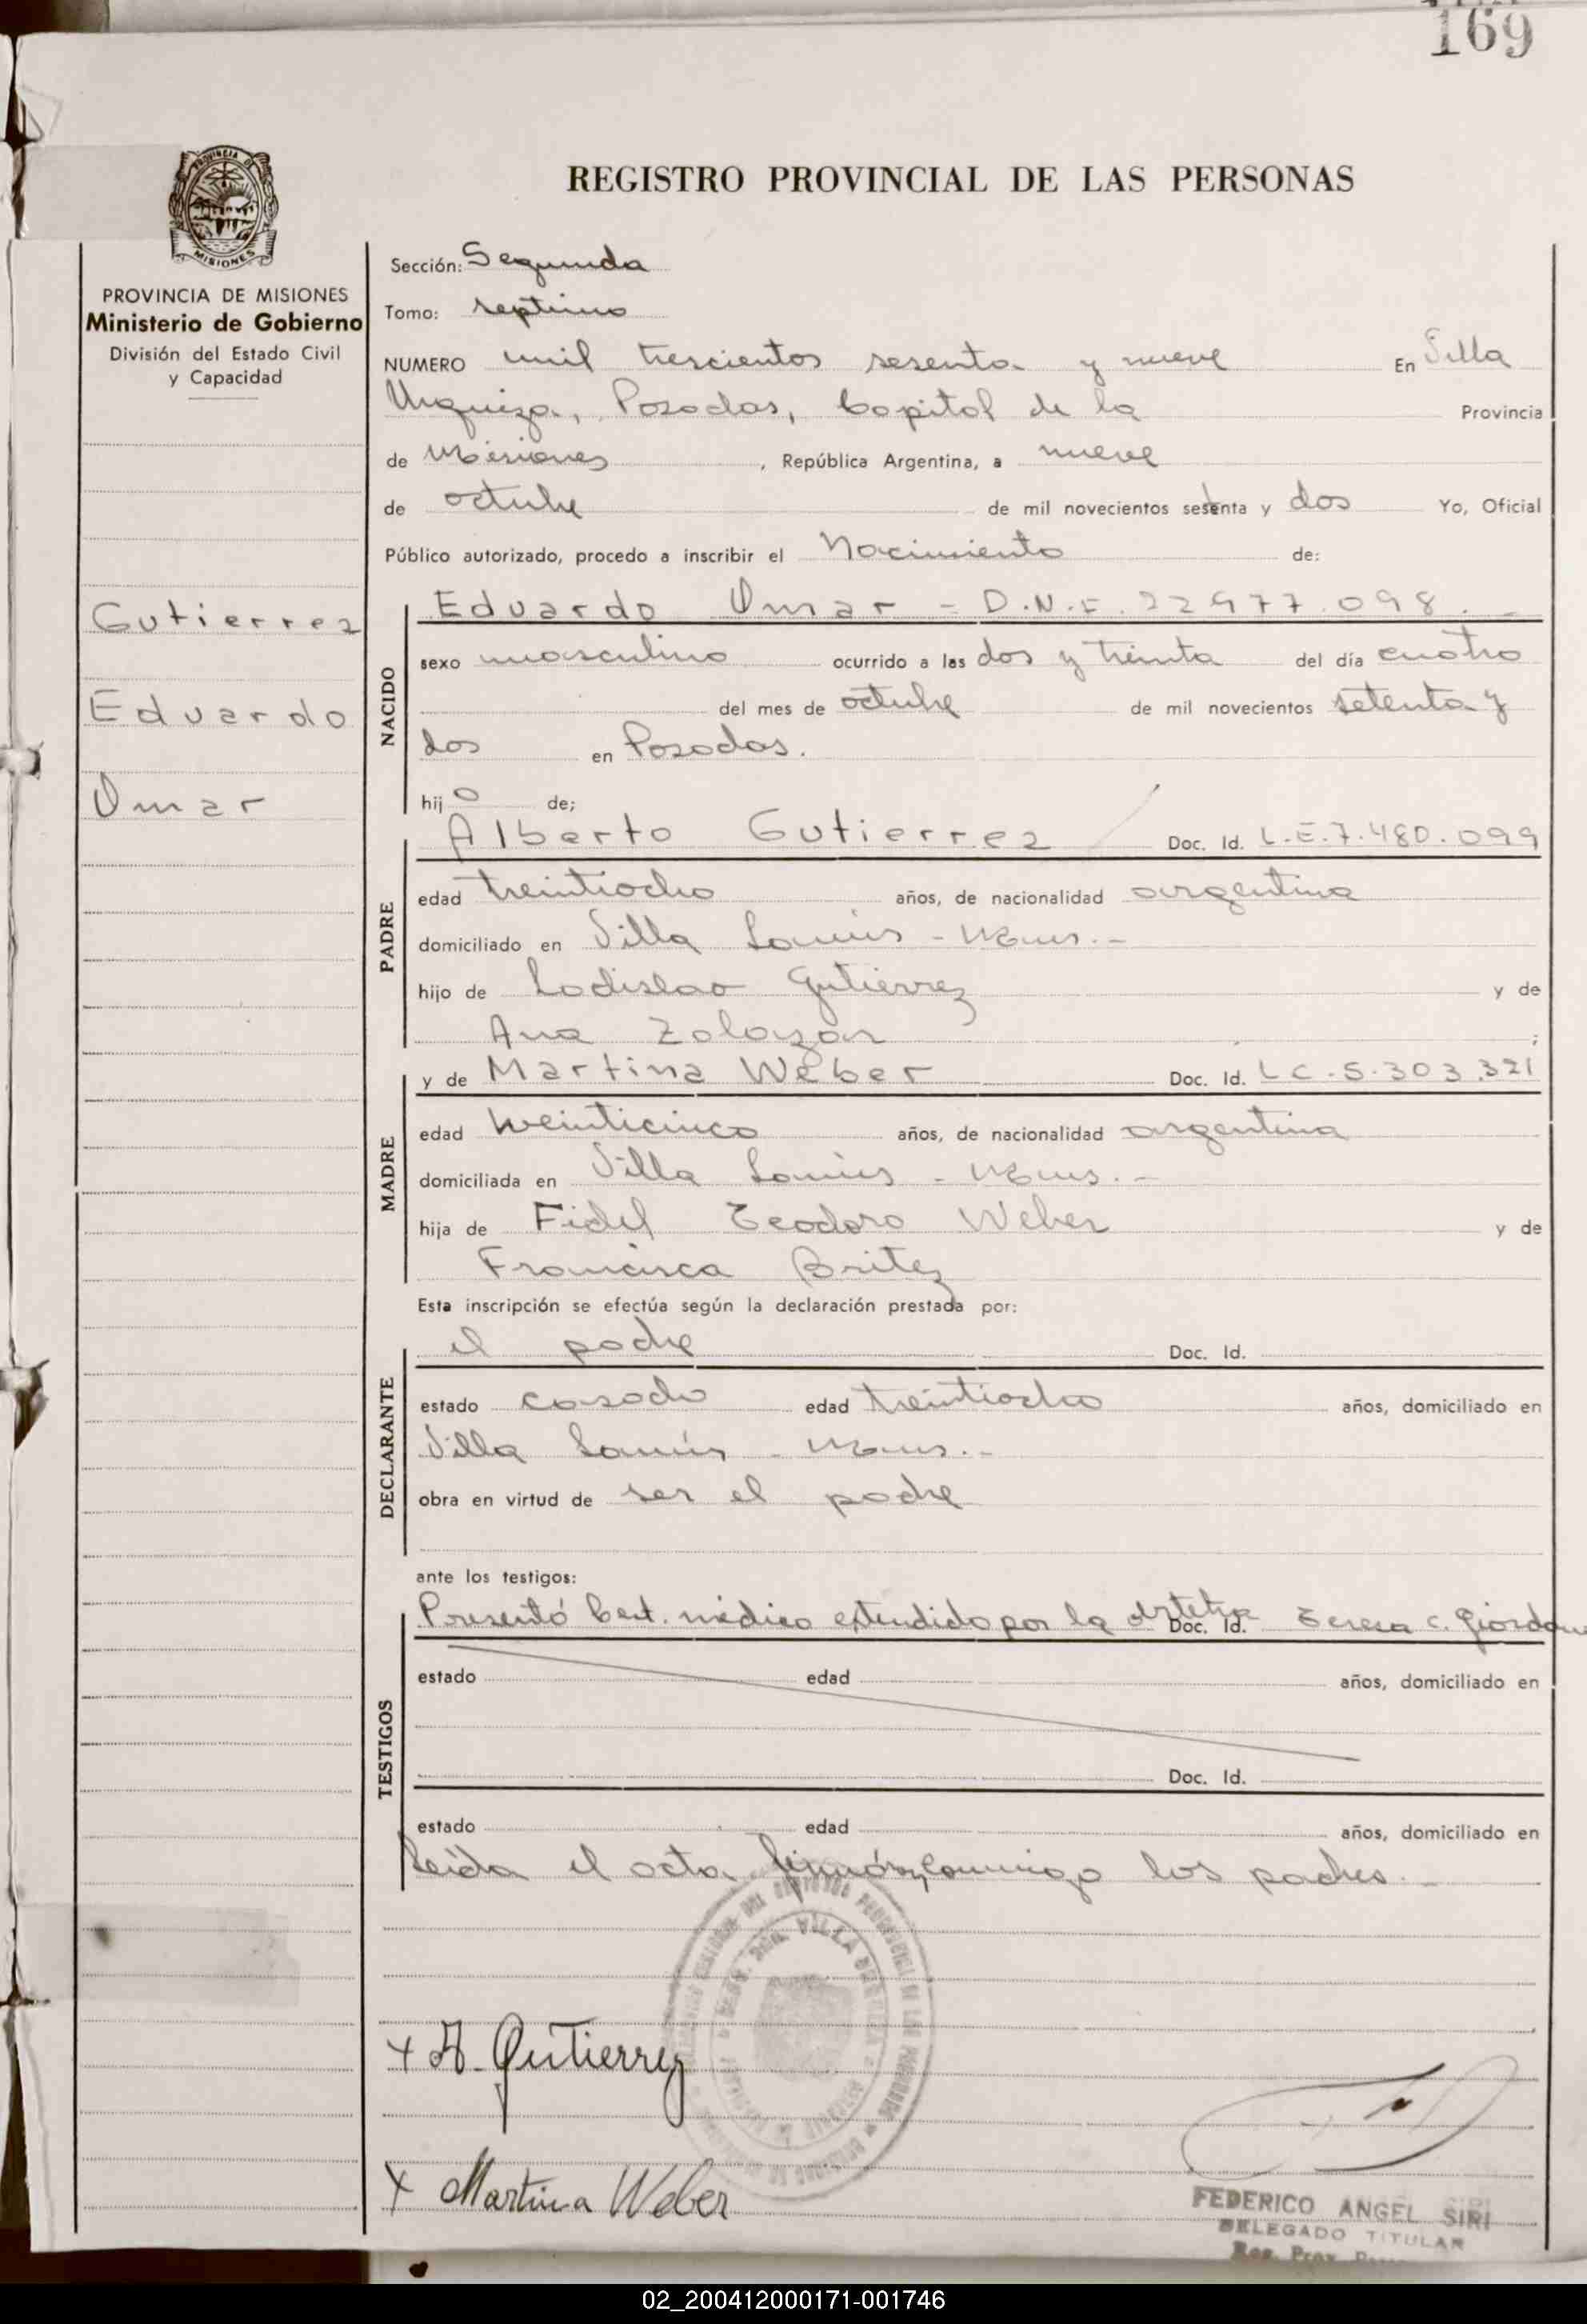 169
REGISTRO PROVINCIAL DE LAS PERSONAS
PROVINCIA DE MISIONES
Ministerio de Gobierno
División del Estado Civil
y Capacidad
Gutierrez
Eduardo
Omar
Sección: Segunda
Tomo: septimo
NUMERO mil trescientos sesenta y nueve En Villa
Urquiza, Posadas, Capital de la Provincia
de Misiones, República Argentina, a nueve
de octubre de mil novecientos setenta y dos Yo, Oficial
Público autorizado, procedo a inscribir el Nacimiento de:
NACIDO
Eduardo Omar - D.N.I. 22977.098.-
sexo masculino ocurrido a las dos y treinta del día cuatro
del mes de octubre de mil novecientos setenta y
dos en Posadas.
hijo de;
PADRE
Alberto Gutierrez Doc. Id. L.E.7.480.099
edad treintiocho años, de nacionalidad argentina
domiciliado en Villa Lanús - Mnes.-
hijo de Ladislao Gutiérrez y de
Ana Zalazar ;
MADRE
y de Martina Weber Doc. Id. LC.5.303.321
edad veinticinco años, de nacionalidad argentina
domiciliada en Villa Lanús - Mnes.-
hija de Fidel Teodoro Weber y de
Francisca Britez
Esta inscripción se efectúa según la declaración prestada por:
DECLARANTE
el padre Doc. Id.
estado casado edad treintiocho años, domiciliado en
Villa Lanús - Mnes.-
obra en virtud de ser el padre
ante los testigos:
TESTIGOS
Presentó Cert. médico extendido por la obstetra Doc. Id. Teresa C. Giordano
estado edad años, domiciliado en
Doc. Id.
estado edad años, domiciliado en
Leída el acta firmáron conmigo los padres.-
VILLA
+ A. Gutierrez
+ Martina Weber
FEDERICO ANGEL SIRI
DELEGADO TITULAR
Reg. Prov.
02_200412000171-001746